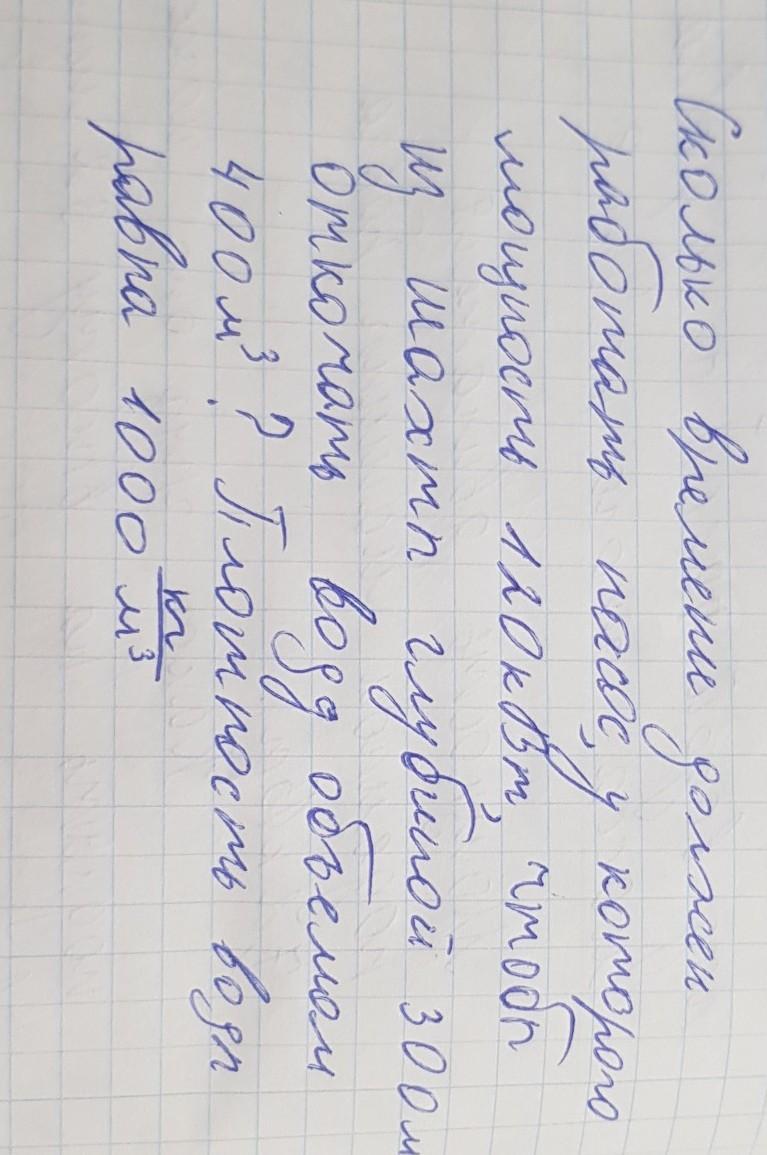 Сколько времени должен
работать насос, у которого
мощность 120 кВт, чтобы
из шахты глубиной 300 м
откочать воду объемом
400 м³? Плотность воды
равна 1000 кг/м³